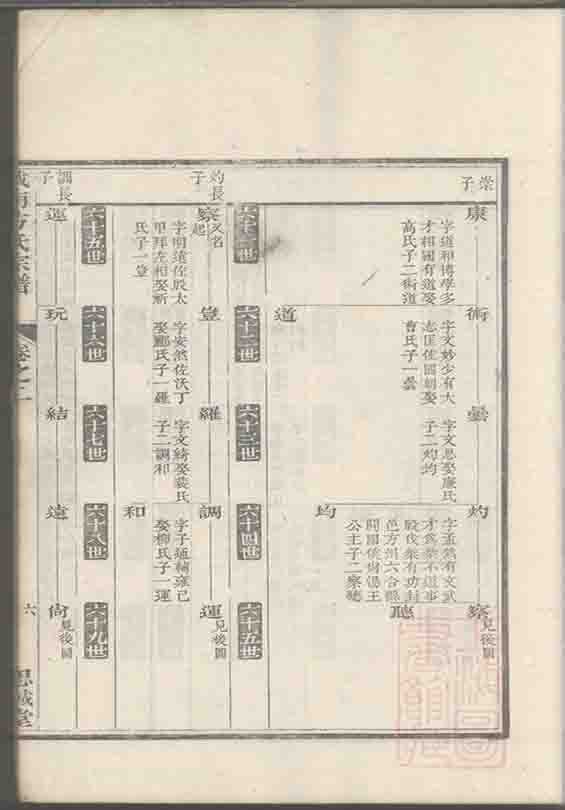 崇子
康
字道和博學多
才相國有道娶
高氏子二術道
術
字文妙少有大
志匡佐國朝娶
曹氏子一曇
道
曇
字文思娶廉氏
子二灼均
灼
字孟然有文武
才爲桀不道事
殷伐桀有功封
邑方州六合縣
開國侯尚湯王
公主子二察聽
均
察
見後圖
聽
六十二世
六十三世
六十四世
六十五世
灼長子
察
又名起
字明遠佐殷太
甲拜左相娶新
氏子一豈
豈
字安然佐沃丁
娶鄺氏子一羅
羅
字文綺娶裴氏
子二調和
調
字子通輔雍己
娶柳氏子一運
和
運
見後圖
六十五世
六十六世
六十七世
六十八世
六十九世
調長子
運
玩
結
遠
尚
見後圖
方氏宗譜
卷之
六
思誠堂